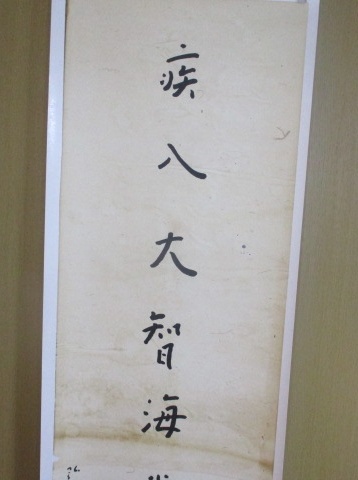 疾入大智海